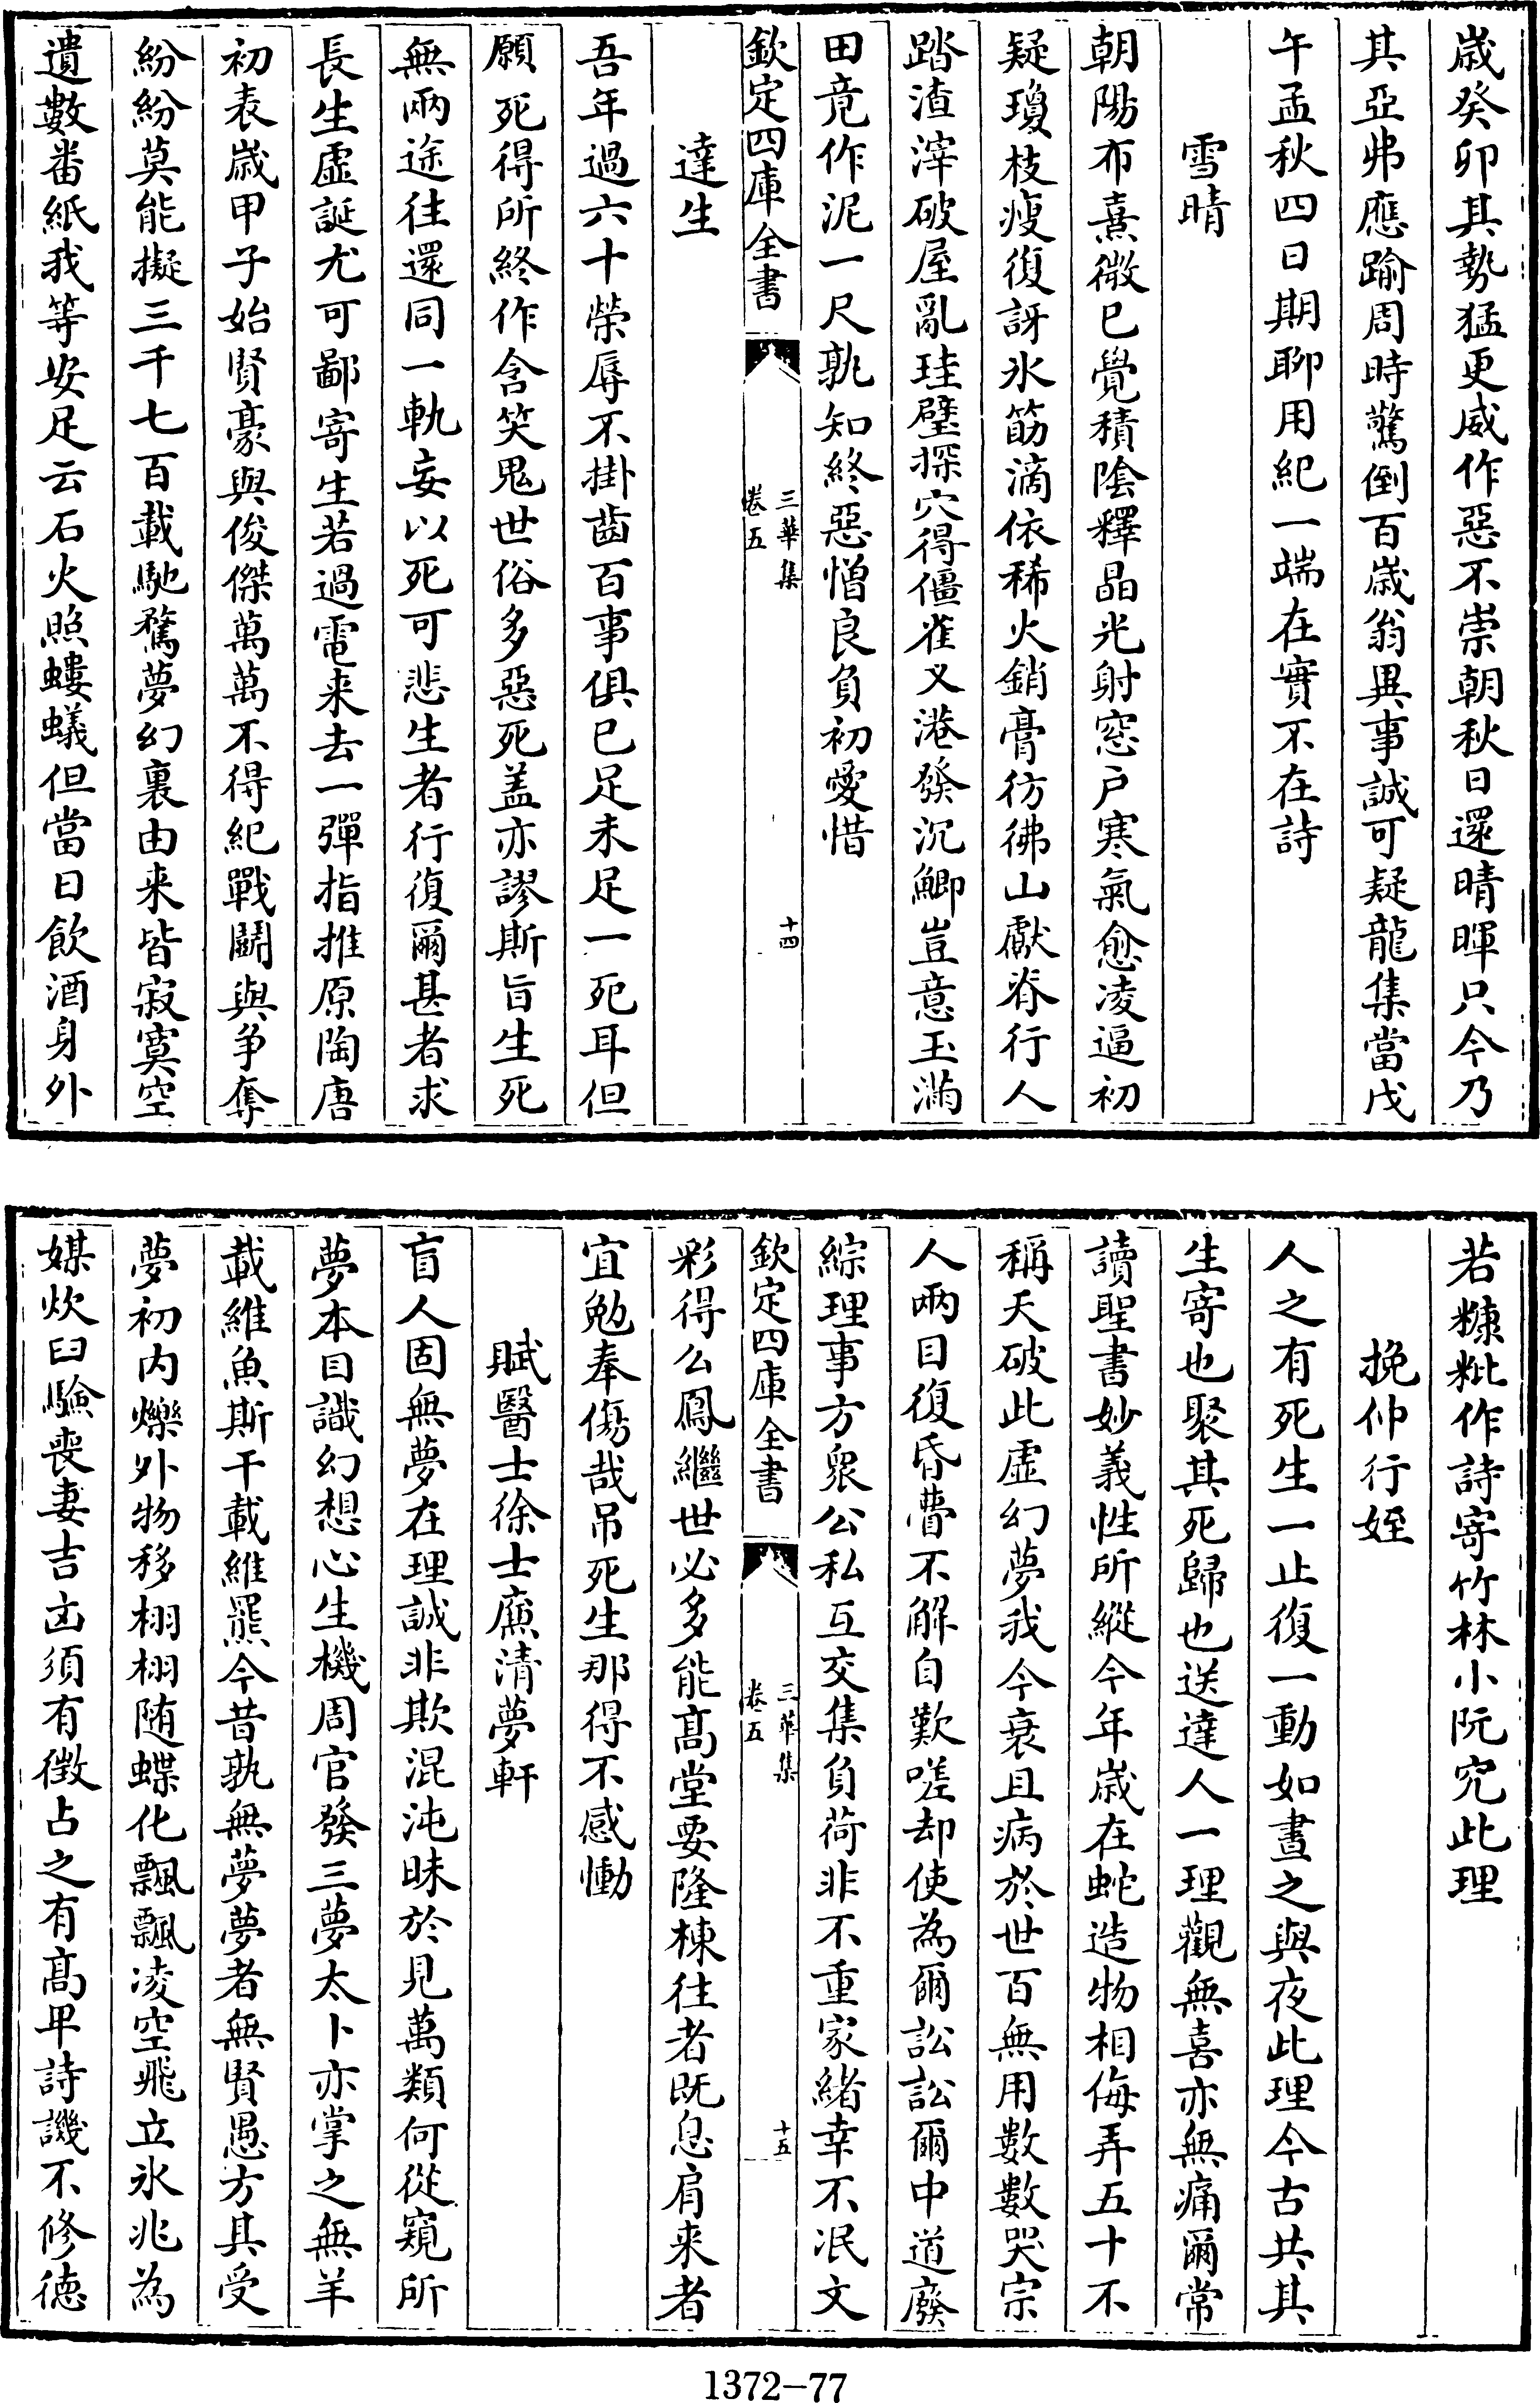 歲癸卯其勢猛更威作惡不崇朝秋日還晴暉只今乃
其亞弗應踰周時驚倒百歲翁異事誠可疑龍集當戊
午孟秋四日期聊用紀一端在實不在詩
雪晴
朝陽布熹微已覺積陰釋晶光射窓戶寒氣愈凌逼初
疑瓊枝瘦復訝氷筋滴依稀火銷膏彷彿山獻脊行人
踏渣滓破屋亂珪璧探穴得僵雀叉港發沉鯽豈意玉滿
田竟作泥一尺孰知終惡憎良負初愛惜
欽定四庫全書
三華集
卷五
十四
達生
吾年過六十榮辱不掛齒百事俱已足未足一死耳但
願死得所終作含笑鬼世俗多惡死盖亦謬斯旨生死
無兩途往還同一軌妄以死可悲生者行復爾甚者求
長生虛誕尤可鄙寄生若過電来去一彈指推原陶唐
初表歲甲子始賢豪與俊傑萬萬不得紀戰鬭與爭奪
紛紛莫能擬三千七百載馳騖夢幻裏由来皆寂寞空
遺數番紙我等安足云石火照螻蟻但當日飲酒身外
若糠粃作詩寄竹林小阮究此理
挽仲行姪
人之有死生一止復一動如晝之與夜此理今古共其
生寄也聚其死歸也送達人一理觀無喜亦無痛爾常
讀聖書妙義性所縱今年歲在蛇造物相侮弄五十不
稱天破此虛幻夢我今衰且病於世百無用數數哭宗
人兩目復昏瞢不解自歎嗟却使為爾訟訟爾中道廢
綜理事方眾公私互交集負荷非不重家緒幸不泯文
欽定四庫全書
三華集
卷五
十五
彩得公鳳繼世必多能高堂要隆棟往者既息肩来者
宜勉奉傷哉吊死生那得不感慟
賦醫士徐士廉清夢軒
盲人固無夢在理誠非欺混沌昧於見萬類何從窺所
夢本目識幻想心生機周官發三夢太卜亦掌之無羊
載維魚斯干載維羆今昔孰無夢夢者無賢愚方其受
夢初內爍外物移栩栩随蝶化飄飄凌空飛立氷兆為
媒炊臼驗喪妻吉凶須有徵占之有高卑詩譏不修德
1372-77